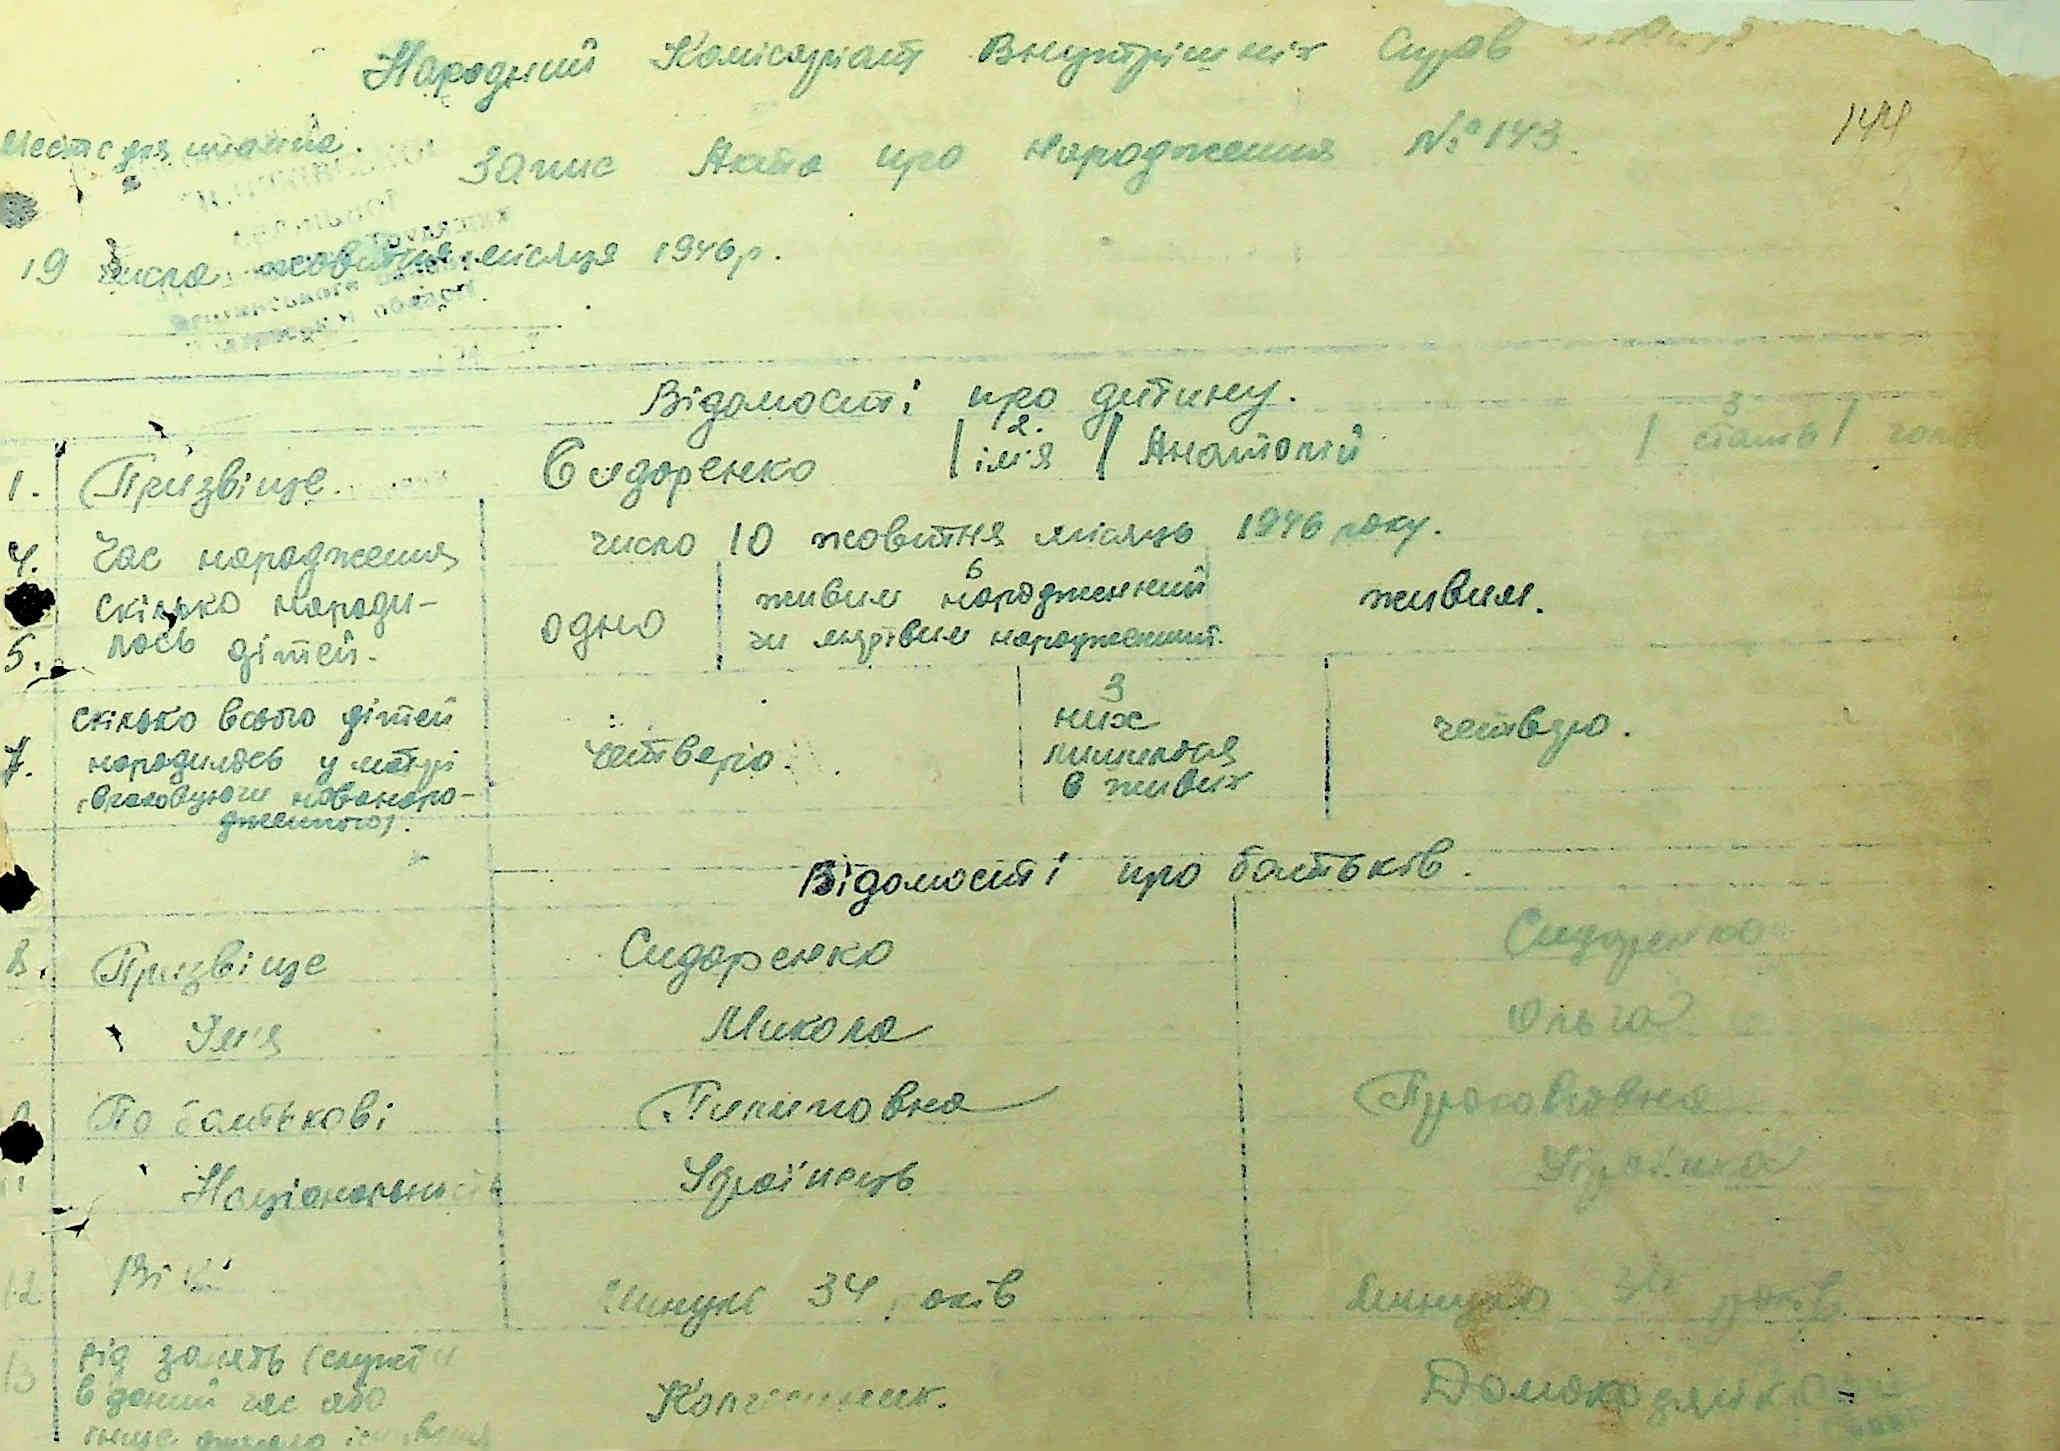 Народний Комісаріат Внутрішніх Справ
144
Місце для штампа.
Запис Акта про народження № 143.
19 числа жовтня місяця 1946 р.
Відомості про дитину.
1. Призвіще Сидоренко | 2. ім'я | Анатолій | 3 стать | чол
4. Час народження число 10 жовтня місяць 1946 року.
5. скілько народи-
лось дітей. одно 6 живим народженний
чи мертвим народженний. живим.
7. скілько всього дітей
народилось у матері
(враховуючи новонаро-
дженного). четверо. З
них
лишилося
в живих четверо.
Відомості про батьків.
8. Призвіще Сидоренко Сидоренко
Ім'я Микола Ольга
По батькові Пилиповна
Національність Украінець Украінка
12 Вік минуло 34 років минуло 34 років
13 рід занять (служби
в даний час або
Домохозяйка